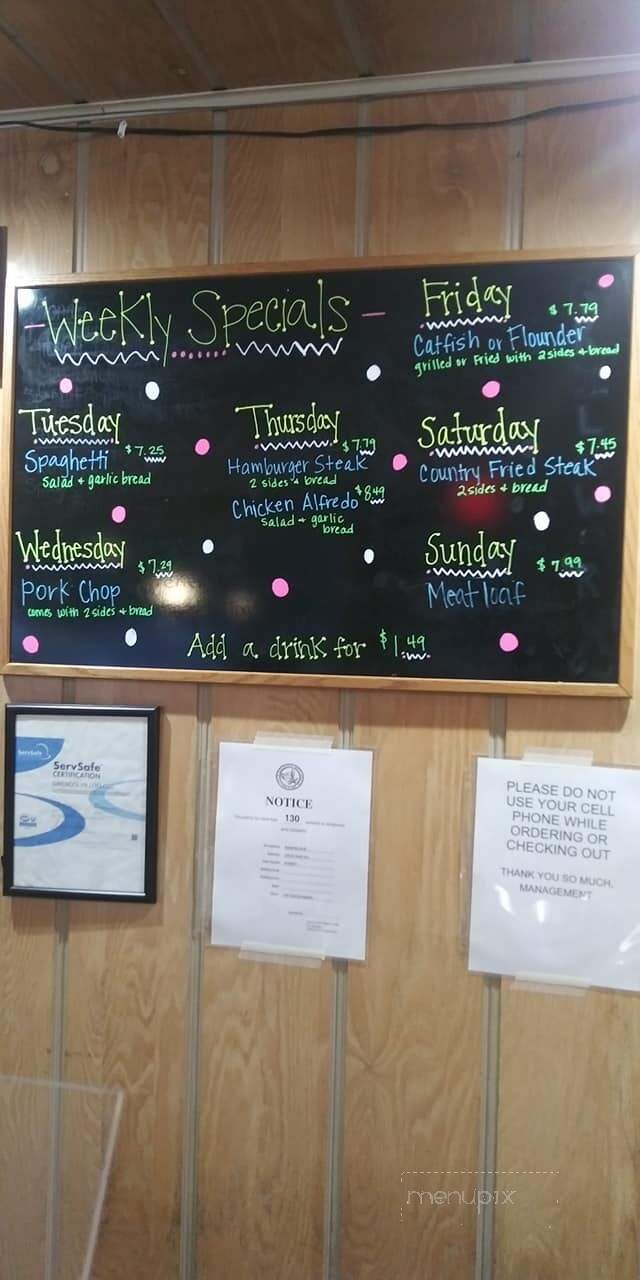 Weekly Specials
Tuesday
$7.25
Spaghetti
Salad + garlic bread
Wednesday
$7.29
Pork Chop
comes with 2 sides + bread
Thursday
$7.79
Hamburger Steak
2 sides + bread
Chicken Alfredo $8.49
Salad + garlic
bread
Friday
$7.79
Catfish or Flounder
grilled or Fried with 2 sides + bread
Saturday
$7.45
Country Fried Steak
2 sides + bread
Sunday
$7.99
Meatloaf
Add a drink for $1.49
ServSafe
ServSafe
CERTIFICATION
NOTICE
130
PLEASE DO NOT
USE YOUR CELL
PHONE WHILE
ORDERING OR
CHECKING OUT
THANK YOU SO MUCH,
MANAGEMENT
menupix